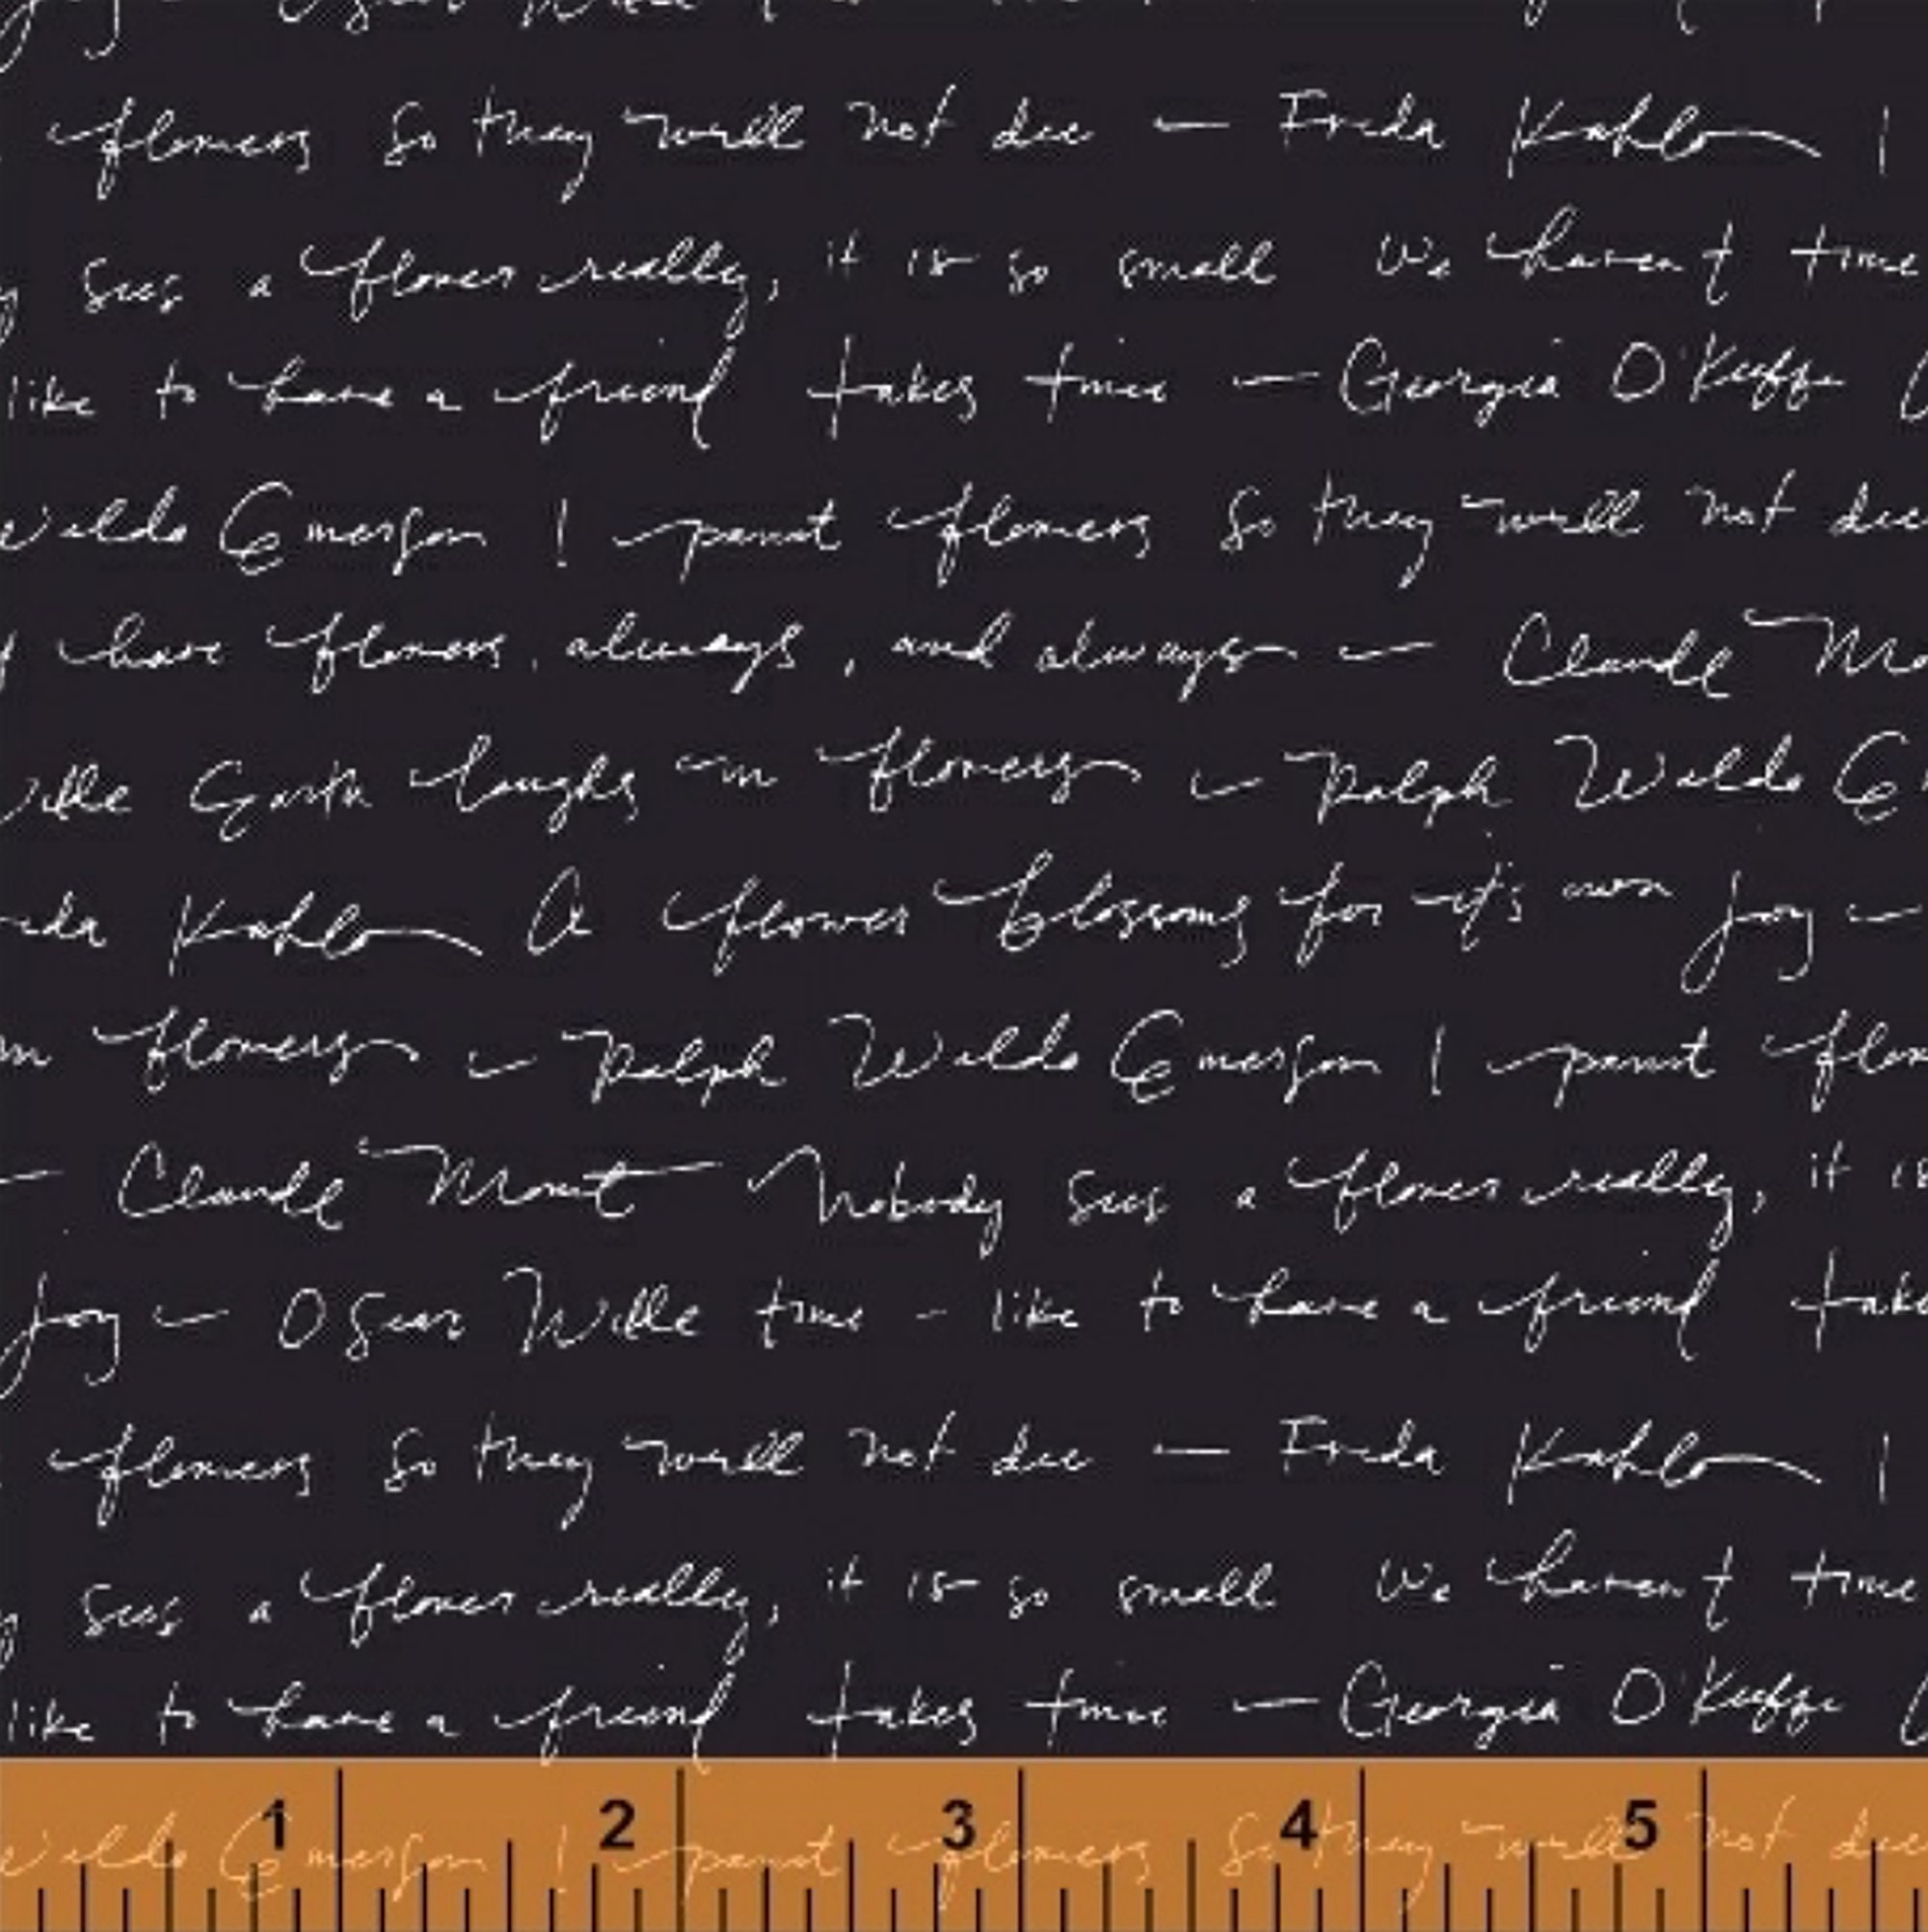 flowers so they will not die — Frida Kahlo I
sees a flower really, it is so small We haven't time
like to have a friend takes time — Georgia O'Keeffe
Waldo Emerson I paint flowers so they will not die
have flowers, always, and always — Claude Mo
Wilde Earth laughs in flowers — Ralph Waldo E
ida Kahlo A flower blossoms for it's own joy —
in flowers — Ralph Waldo Emerson I paint flow
— Claude Monet Nobody sees a flower really, it is
joy — Oscar Wilde time - like to have a friend take
flowers so they will not die — Frida Kahlo I
sees a flower really, it is so small We haven't time
like to have a friend takes time — Georgia O'Keeffe
1 2 3 4 5
Waldo Emerson I paint flowers so they will not die